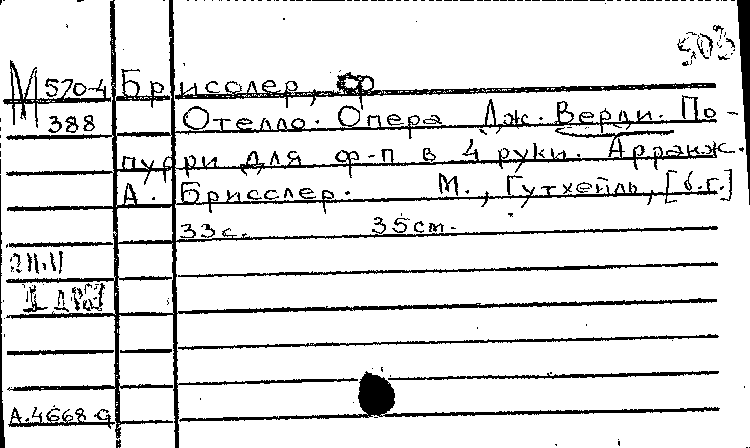 503
М 570-4 Брисслер, Ф
388 Отелло. Опера Дж. Верди. По-
пурри для ф-п в 4 руки. Арранж.
А. Брисслер. М., Гутхейль, [б.г.]
33с. 35см.
А.4668-9